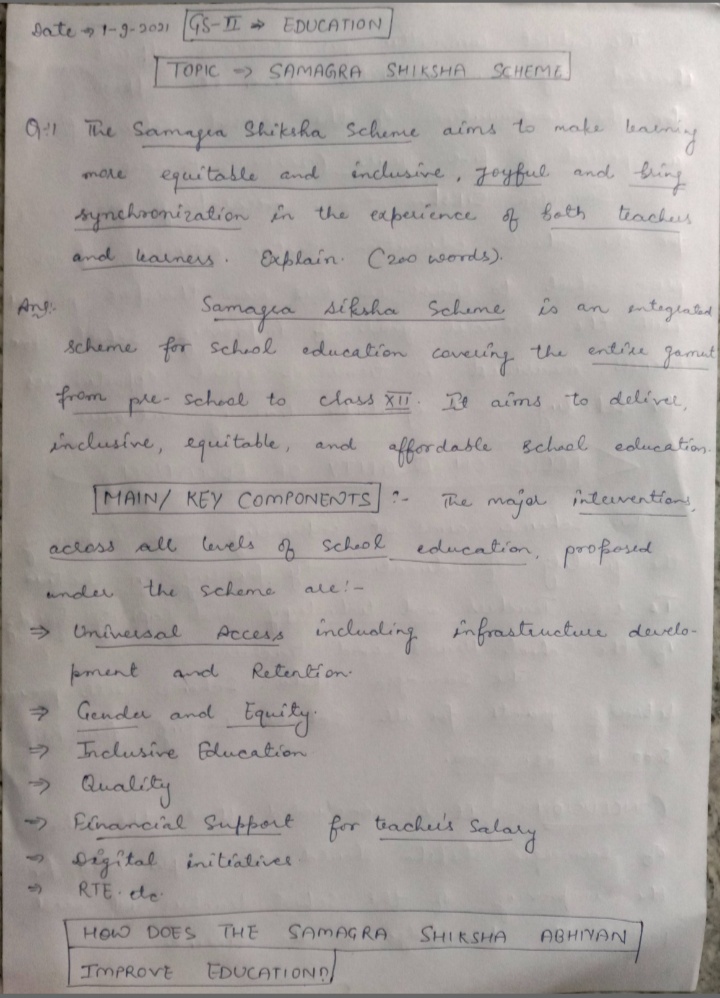 Date → 1-9-2021 GS-II ⇒ EDUCATION
TOPIC → SAMAGRA SHIKSHA SCHEME
Q:1 The Samagra Shiksha Scheme aims to make learning
more equitable and inclusive, joyful and bring
synchronization in the experience of both teachers
and learners. Explain. (200 words).
Ans:- Samagra siksha Scheme is an integrated
scheme for school education covering the entire gamut
from pre-school to class XII. It aims to deliver,
inclusive, equitable, and affordable school education.
MAIN/ KEY COMPONENTS :- The major interventions,
across all levels of school education, proposed
under the scheme are:-
⇒ Universal Access including infrastructure develo-
pment and Retention.
⇒ Gender and Equity.
⇒ Inclusive Education
⇒ Quality
⇒ Financial Support for teacher's Salary
⇒ Digital initiatives
⇒ RTE. etc.
HOW DOES THE SAMAGRA SHIKSHA ABHIYAN
IMPROVE EDUCATION?